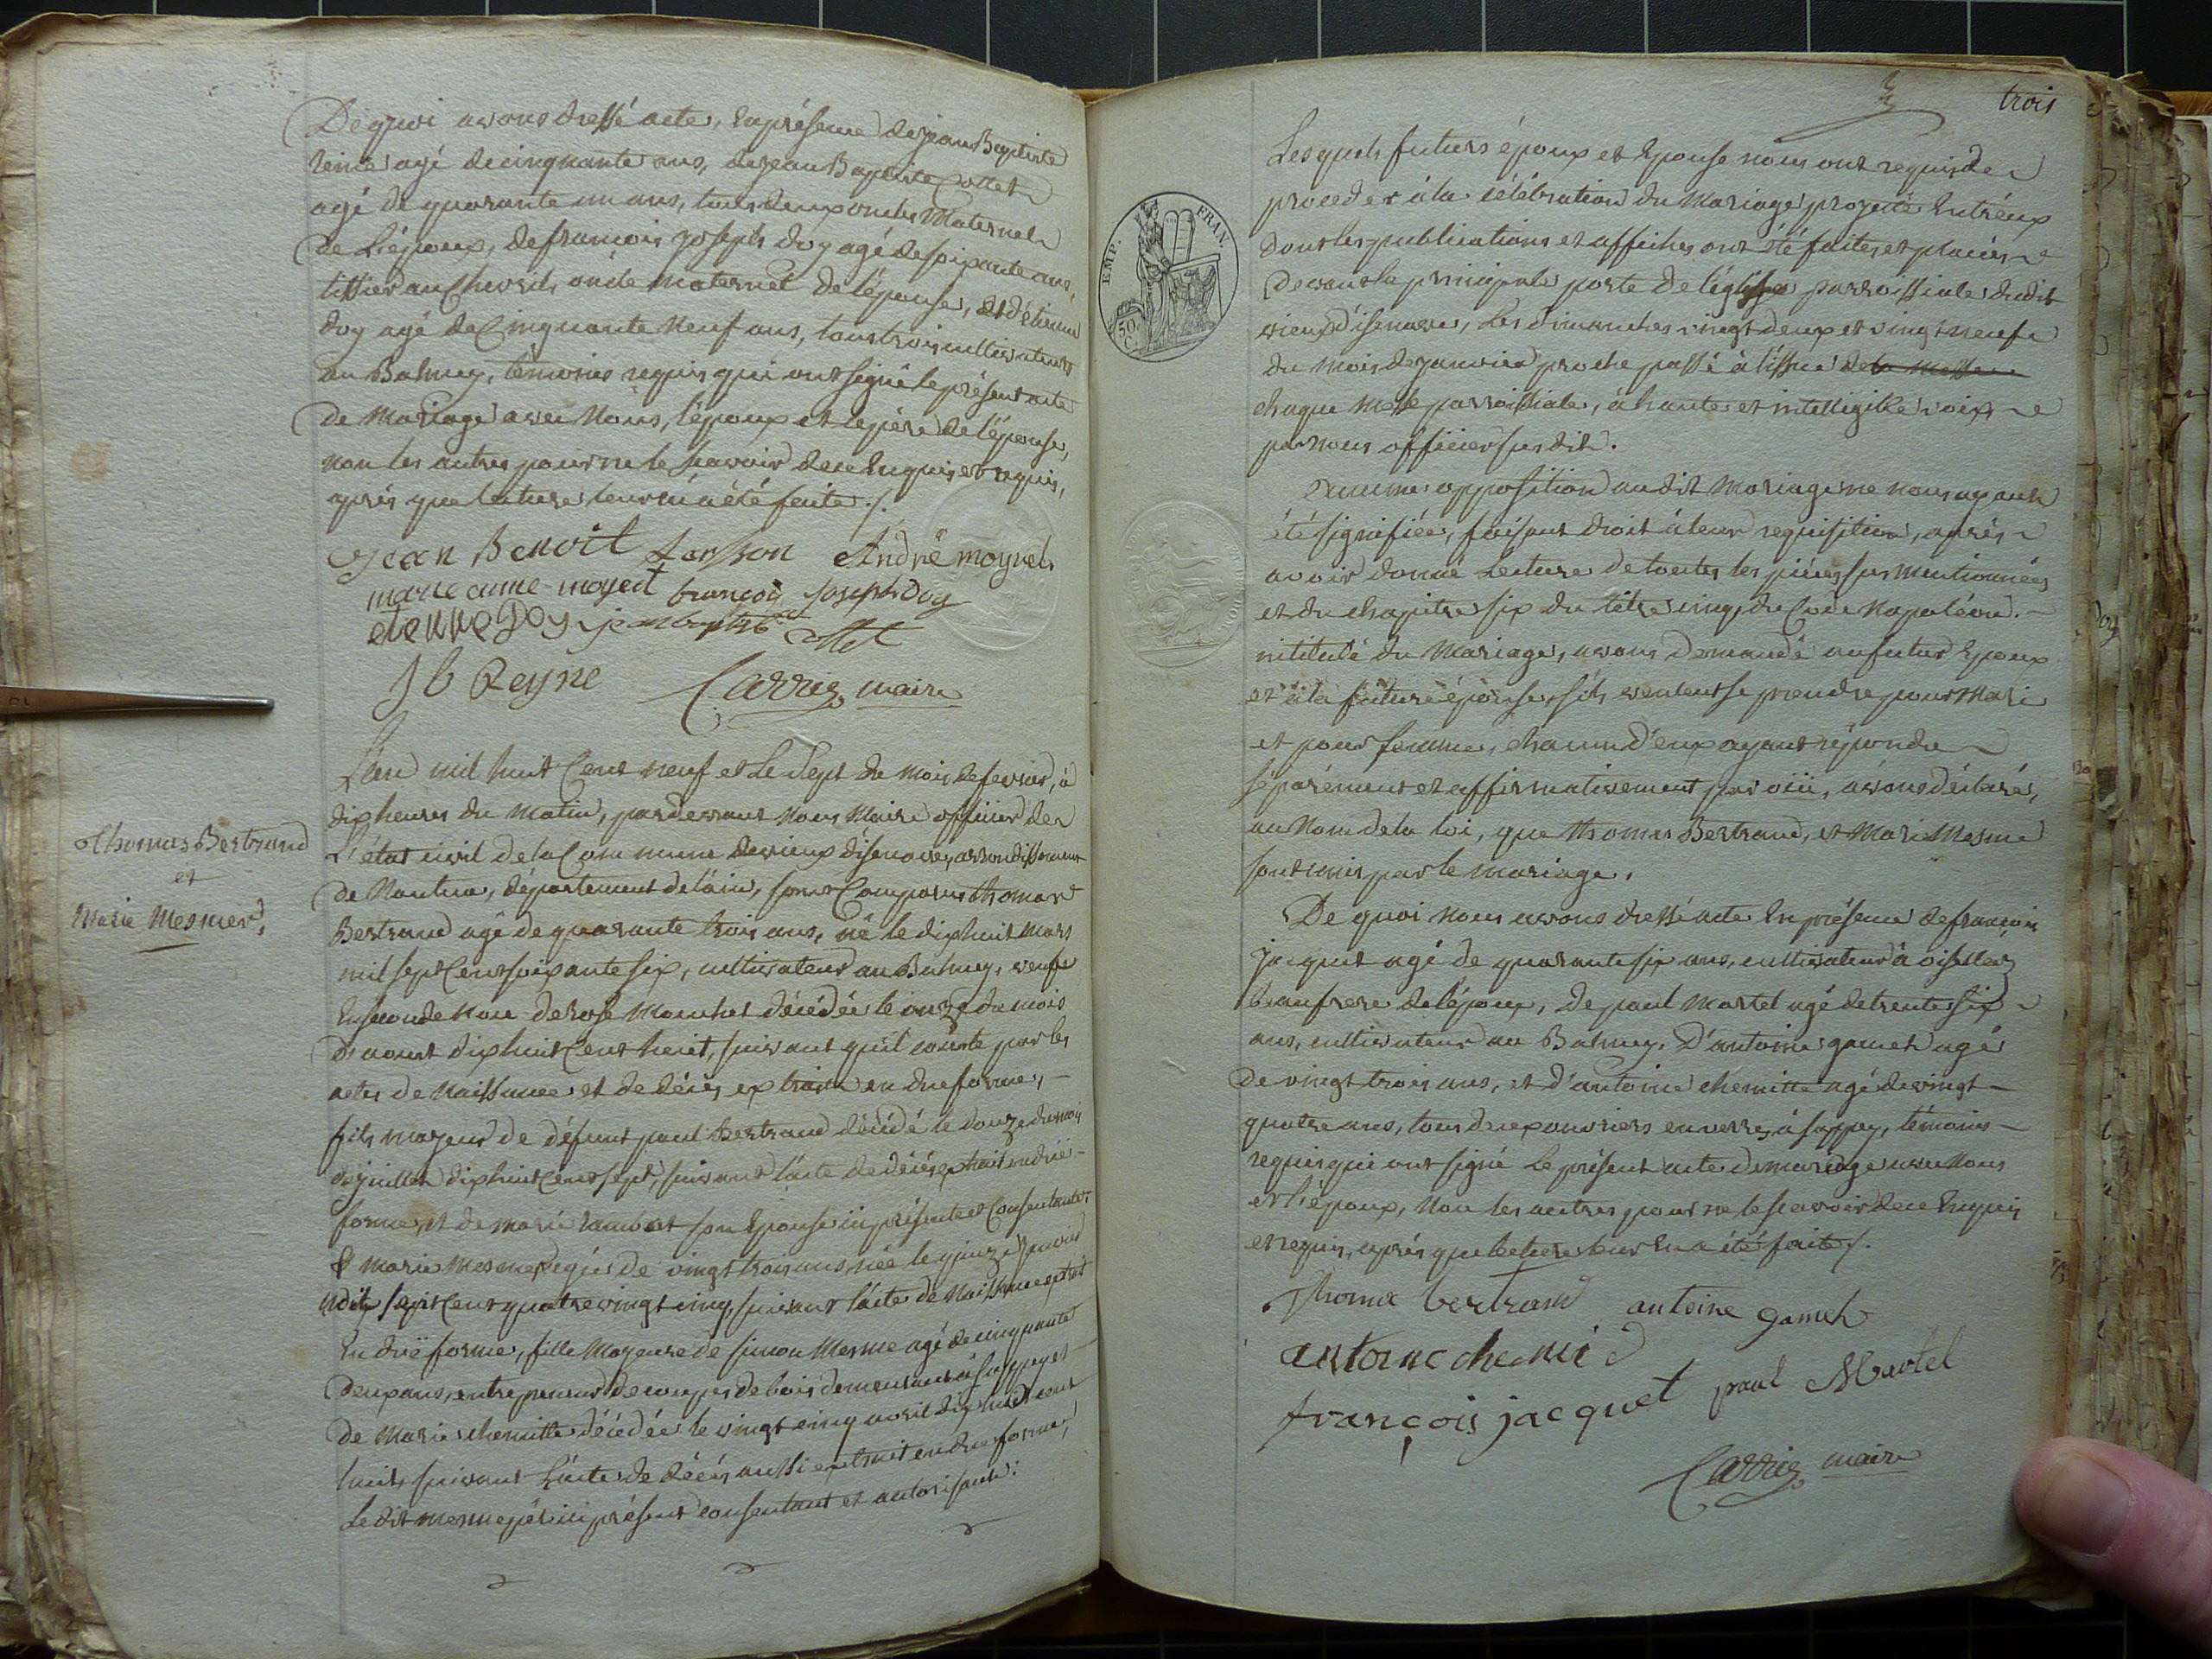 De quoi avons dressé acte, en présence de jean Baptiste
reine agé de cinquante ans, de jean Baptiste Collet
agé de quarante un ans, tous deux oncles Maternels
de L'époux, de francois joseph doy agé de soixante ans,
tissier au Chevril, oncle maternel de l'épouse, et d'étienne
doy agé de Cinquante neuf ans, tous trois cultivateurs
au Balmey, témoins requis qui ont signé le présent acte
de Mariage avec Nous, l'époux et le père de l'épouse,
non les autres pour ne le scavoir de ce Enquis et requis,
après que lecture leur en a été faite ./.
jean Benoit André moynet
marie anne moynet françois joseph Doy
etienne Doy jean baptiste collet
J b Reyne Carrier maire
L'an mil huit Cent neuf et Le Sept du Mois de fevrier, à
dix heures du Matin, pardevant Nous Maire officier de
L'état civil de la Commune de vieux d'isenave, arrondissement
de Nantua, département de l'ain, sont Comparus thomas
Bertrand agé de quarante trois ans, né le dix huit Mars
mil sept Cent soixante six, cultivateur au Balmey, veuf
En seconde Noce de rose Mouchet décédée le onze du mois
d'aoust dix huit Cent huit, suivant qu'il conste par les
actes de Naissance et de décès extraits en due forme, -
fils majeur de défunt paul Bertrand décédé le douze du mois
de juillet dix huit Cent sept, suivant l'acte de décès extrait en duë -
forme, et de marie son Epouse ici présente et Consentante.
& Marie Mesme agée de vingt trois ans, née le quinze janvier
sept Cent quatre vingt cinq, suivant l'acte de Naissance extrait
En duë forme, fille Majeure de simon Mesme agé de cinquante
deux ans, entrepreneur de coupes de bois demeurant à sappey et
de Marie chemitte décédée le vingt cinq avril dix huit cent
huit, suivant L'acte de décès aussi extrait en due forme,
Le dit mesme père ici présent consentant et autorisant.
Thomas Bertrand
et
Marie Mesmer,
trois
EMP. FRAN.
50 C.
Lesquels futurs époux et Epouse nous ont requis de
proceder à la célébration du Mariage projetté Entr'eux
dont les publications et affiches ont été faites et placées
devant la principale porte de l'église parroissiale dudit
vieux d'isenave, Les dimanches vingt deux et vingt neuf
du Mois de janvier proche passé à l'issue de la Messe
chaque Messe parroissiale, à haute et intelligible voix
par nous officier susdit.
Aucune opposition au dit Mariage ne nous ayant
été signifiée, faisant droit à leur requisition, après
avoir donné Lecture de toutes les pièces sus mentionnées
et du chapitre six du titre cinq du Code Napoléon. -
intitulé du Mariage, avons demandé au futur Epoux
et à la future épouse, s'ils veulent se prendre pour Mari
et pour femme, chacun d'eux ayant répondu
séparément et affirmativement par oüi, avons déclaré,
au Nom de la loi, que thomas Bertrand, et Marie Mesme
sont unis par le mariage.
De quoi Nous avons dressé acte En présence de francois
jacquet agé de quarante six ans, cultivateur à oisellaz
beaufrere de l'époux, de paul Martel agé de trente six
ans, cultivateur au Balmey, d'antoine gamet agé
de vingt trois ans, et d'antoine chemitte agé de vingt -
quatre ans, tous deux ouvriers en verre, à sappey, témoins -
requis qui ont signé Le présent acte de mariage avec Nous
et l'époux, Non les autres pour ne le scavoir de ce Enquis
et requis, après que lecture leur En a été faite ./.
Thoma bertrand antoine gameh
antoine
françois jacquet paul Martel
Carrier maire